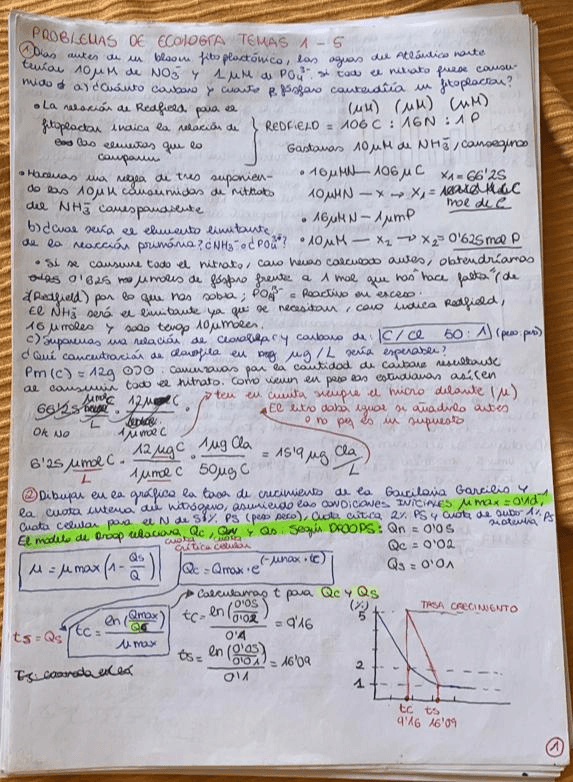 PROBLEMAS DE ECOLOGÍA TEMAS 1-5
① Días antes de un bloom fitoplactónico, las aguas del Atlántico norte
tenían 10 μM de NO3⁻ y 1 μM de PO4³⁻. Si todo el nitrato fuese consu-
mido a) ¿Cuánto carbono y cuánto fósforo contendría el fitoplacton?
• La relación de Redfield para el
fitoplacton indica la relación de
los elementos que lo
componen
(μM) (μM) (μM)
REDFIELD = 106C : 16N : 1P
Gastamos 10 μM de NH3⁻, conseguimos
• Hacemos una regla de tres suponien-
do las 10 μM consumidos de nitrato
del NH3⁻ correspondiente
• 16 μMN — 106 μC x1 = 66'25
10 μMN — x → x1 =
mol de C
• 16 μMN — 1 μmP
• 10 μM — x2 → x2 = 0'625 mol P
b) ¿Cuál sería el elemento limitante
de la reacción primaria? ¿NH3⁻ o ¿PO4³⁻?
• Si se consume todo el nitrato, como hemos calculado antes, obtendríamos
0'625 μmoles de fósforo frente a 1 mol que nos hace falta (de
Redfield) por lo que nos sobra; PO4³⁻ = Reactivo en exceso.
El NH3⁻ será el limitante ya que se necesitan, como indica Redfield,
16 μmoles y solo tengo 10 μmoles.
c) Suponemos una relación de clorofila y carbono de: C/Cl 50:1 (peso:peso)
¿Qué concentración de clorofila en μg/L sería esperable?
Pm(C) = 12g comenzamos por la cantidad de carbono resultante
de consumir todo el nitrato. Como vienen en peso las estudiamos así
ten en cuenta siempre el micro delante (μ)
66'25 μmol C/L · 12 C/1 μmol C
El litro daba igual si
es un supuesto
Ok No
6'25 μmol C/L · 12 μg C/1 μmol C · 1 μg Cla/50 μg C = 15'9 μg Cla/L
② Dibujar en la gráfica la tasa de crecimiento de la Gracilaria y
la cuota interna de nitrógeno, asumiendo las CONDICIONES INICIALES μmax = 0'1d,
cuota celular para el N de 5% PS (peso seco), Cuota crítica 2% PS y cuota de 1% PS
El modelo de Droop relaciona Qc, Qn y Qs. Según DROOPS:
Qn = 0'05
Qc = 0'02
Qs = 0'01
μ = μmax (1 - Qs/Q)
cuota
crítica celular
Qc = Qmax · e^(-μmax · tc)
ts = Qs
tc = ln(Qmax/Qc)/μmax
Calculamos t para Qc y Qs
tc = ln(0'05/0'02)/0'1 = 9'16
ts = ln(0'05/0'01)/0'1 = 16'09
(%)
TASA CRECIMIENTO
5
2
1
tc ts
9'16 16'09
①